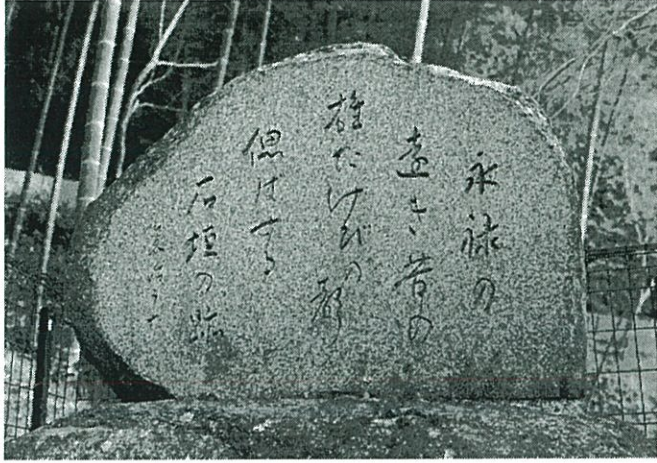 永禄の
遠き昔の
雄たけびの
偲はする
石垣の跡